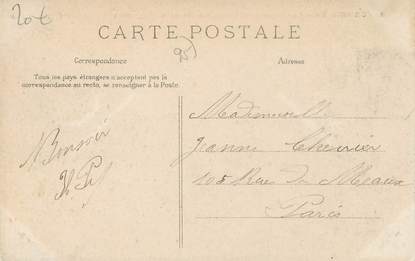 20€
CARTE POSTALE
95
Correspondance
Adresse
Tous les pays étrangers n'acceptent pas la
correspondance au recto, se renseigner à la Poste.
Mademoiselle
Jeanne Chevrier
Bonsoir
105 Rue de Meaux
Paris